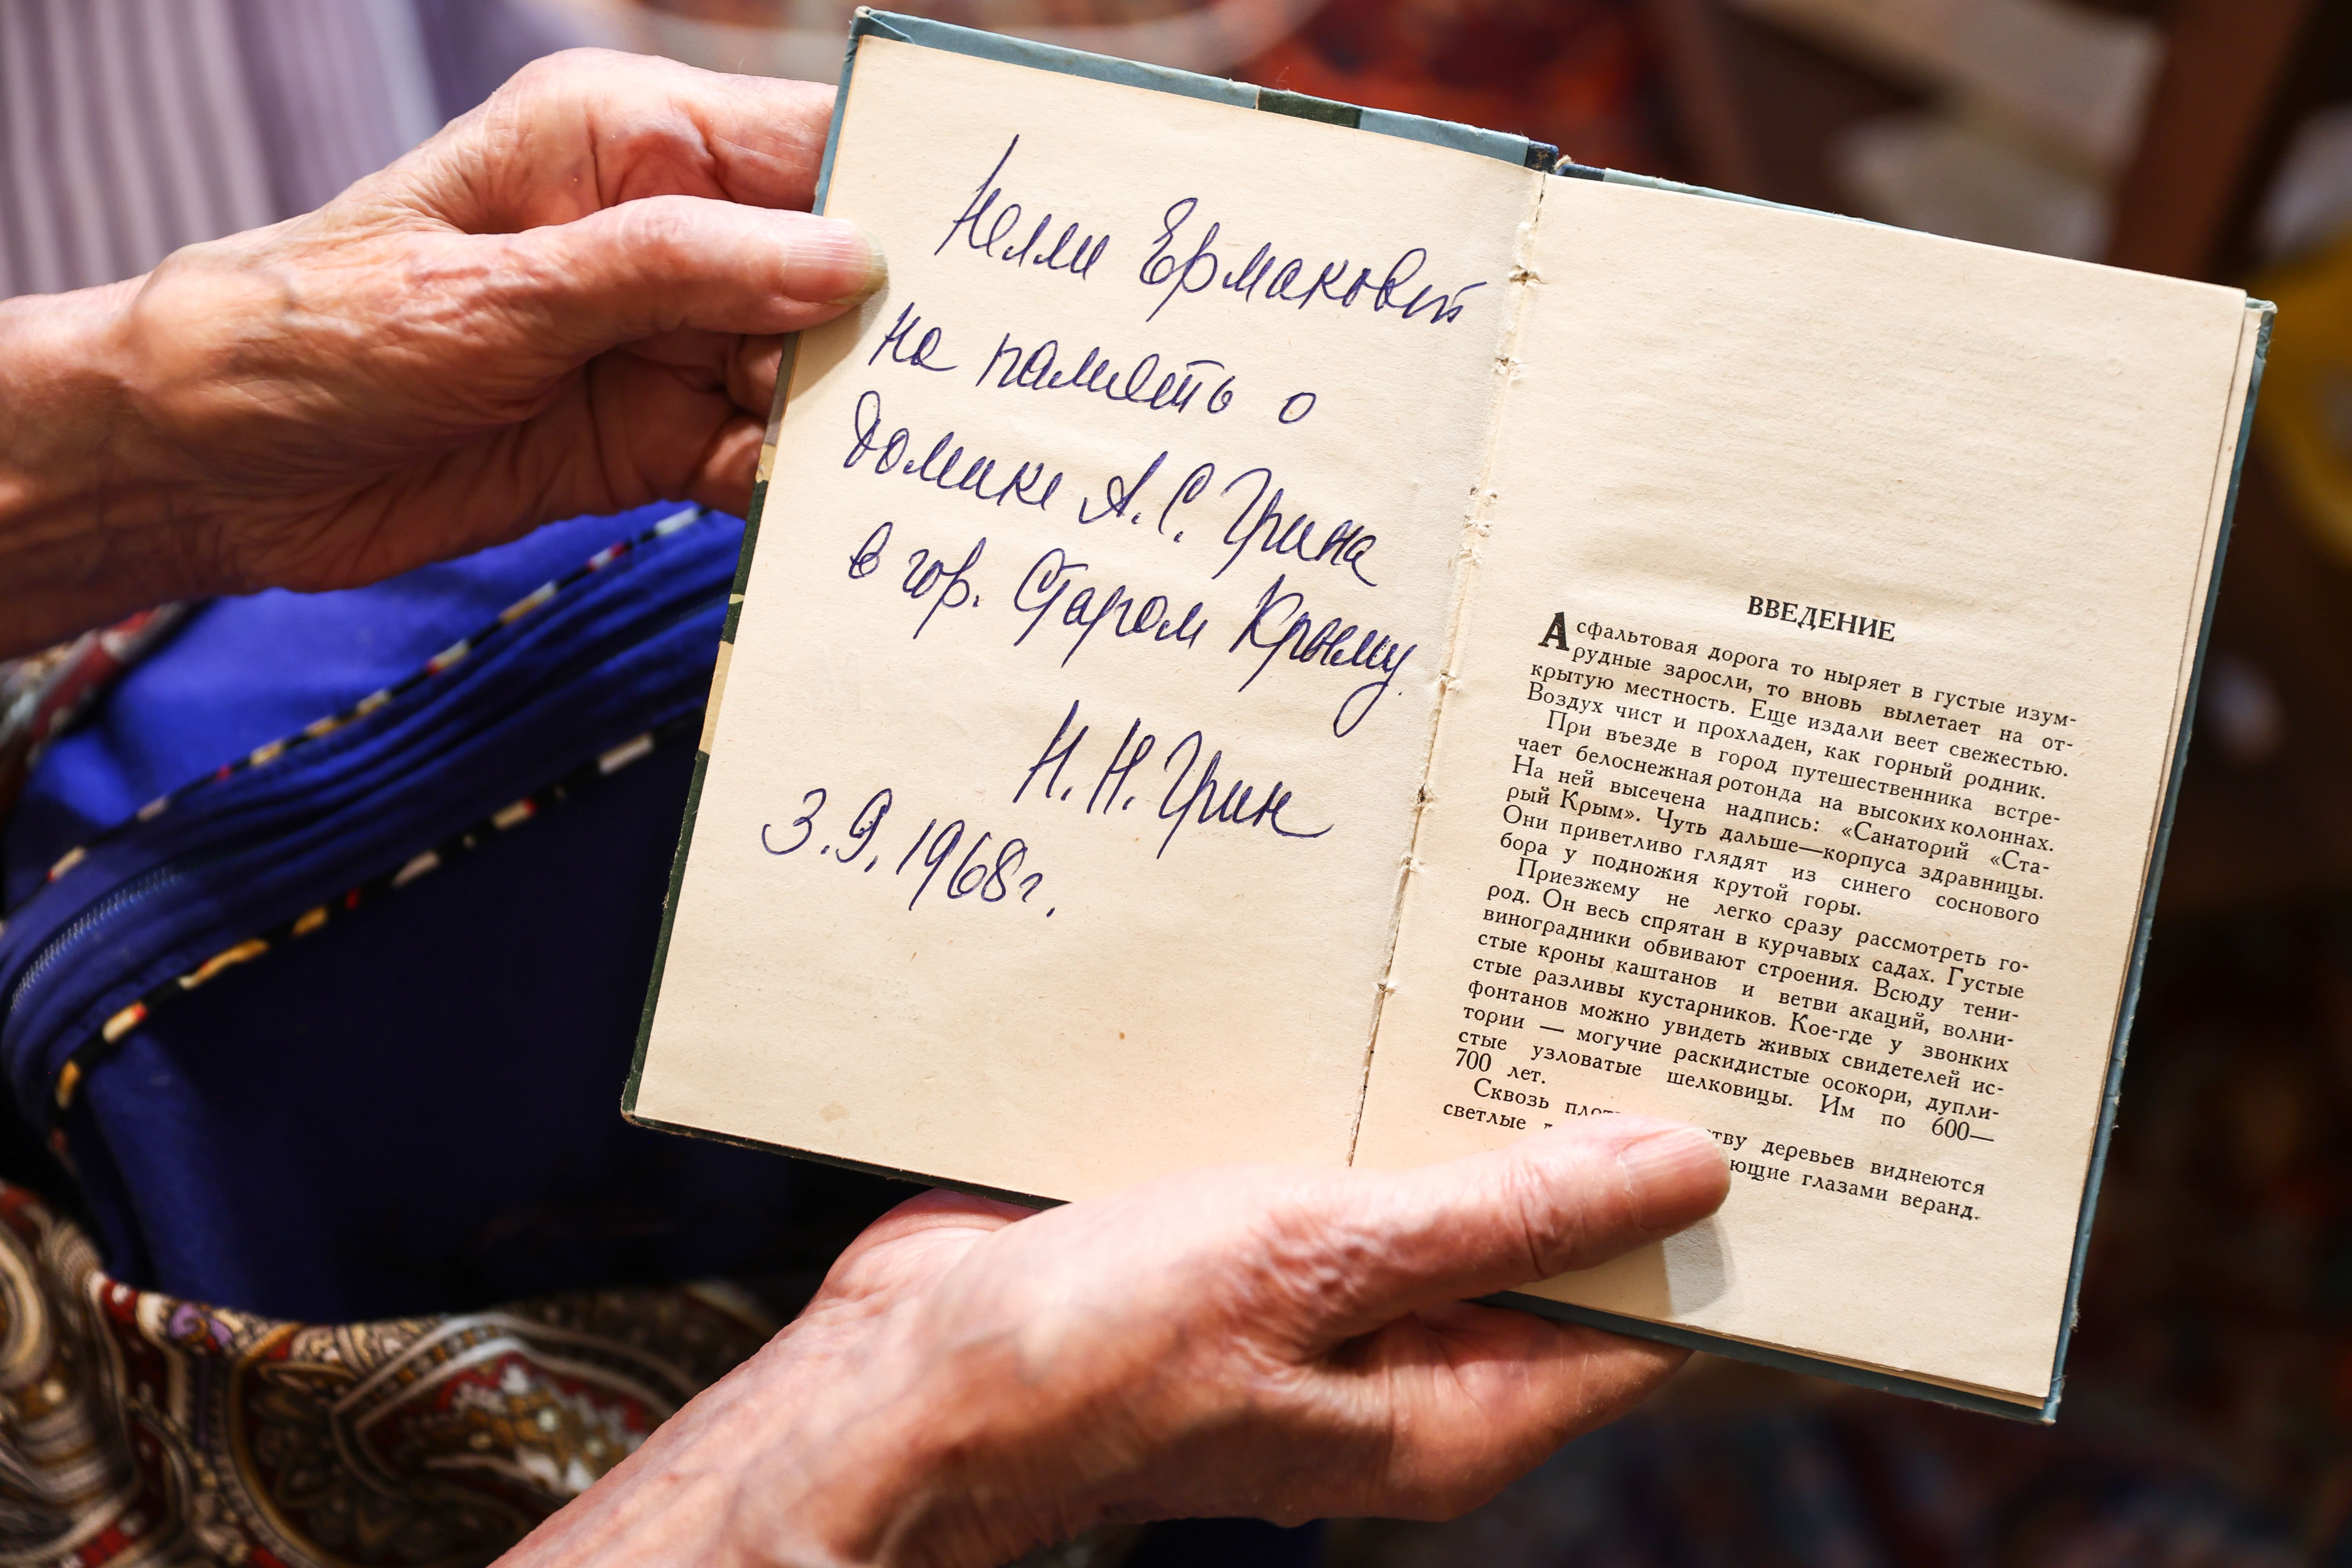 Нелли Ермаковой
на память о
домике А.С. Грина
в гор. Старом Крыму.
Н. Н. Грин
3.9.1968 г.
ВВЕДЕНИЕ
Асфальтовая дорога то ныряет в густые изум-
рудные заросли, то вновь вылетает на от-
крытую местность. Еще издали веет свежестью.
Воздух чист и прохладен, как горный родник.
При въезде в город путешественника встре-
чает белоснежная ротонда на высоких колоннах.
На ней высечена надпись: «Санаторий «Ста-
рый Крым». Чуть дальше—корпуса здравницы.
Они приветливо глядят из синего соснового
бора у подножия крутой горы.
Приезжему не легко сразу рассмотреть го-
род. Он весь спрятан в курчавых садах. Густые
виноградники обвивают строения. Всюду тени-
стые кроны каштанов и ветви акаций, волни-
стые разливы кустарников. Кое-где у звонких
фонтанов можно увидеть живых свидетелей ис-
тории — могучие раскидистые осокори, дупли-
стые узловатые шелковицы. Им по 600—
700 лет.
Сквозь деревьев виднеются
светлые глазами веранд.